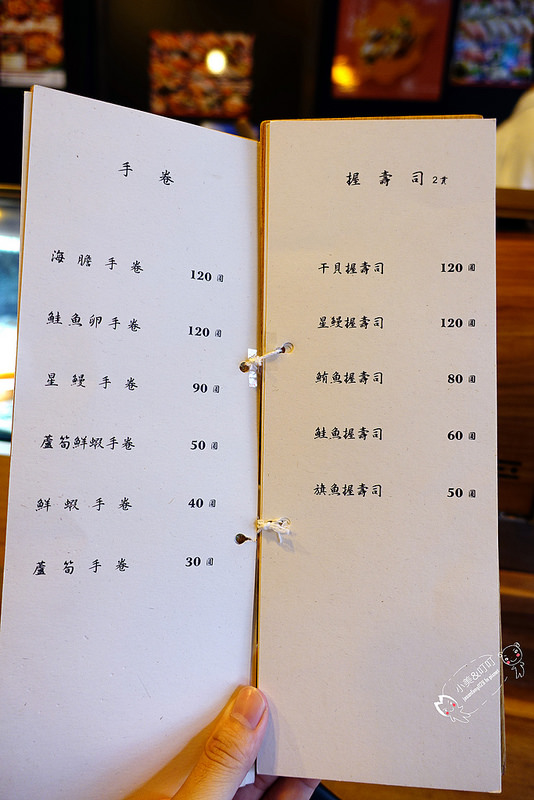 手卷
海膽手卷 120圓
鮭魚卵手卷 120圓
星鰻手卷 90圓
蘆筍鮮蝦手卷 50圓
鮮蝦手卷 40圓
蘆筍手卷 30圓
握壽司 2貫
干貝握壽司 120圓
星鰻握壽司 120圓
鮪魚握壽司 80圓
鮭魚握壽司 60圓
旗魚握壽司 50圓
小美&叮叮